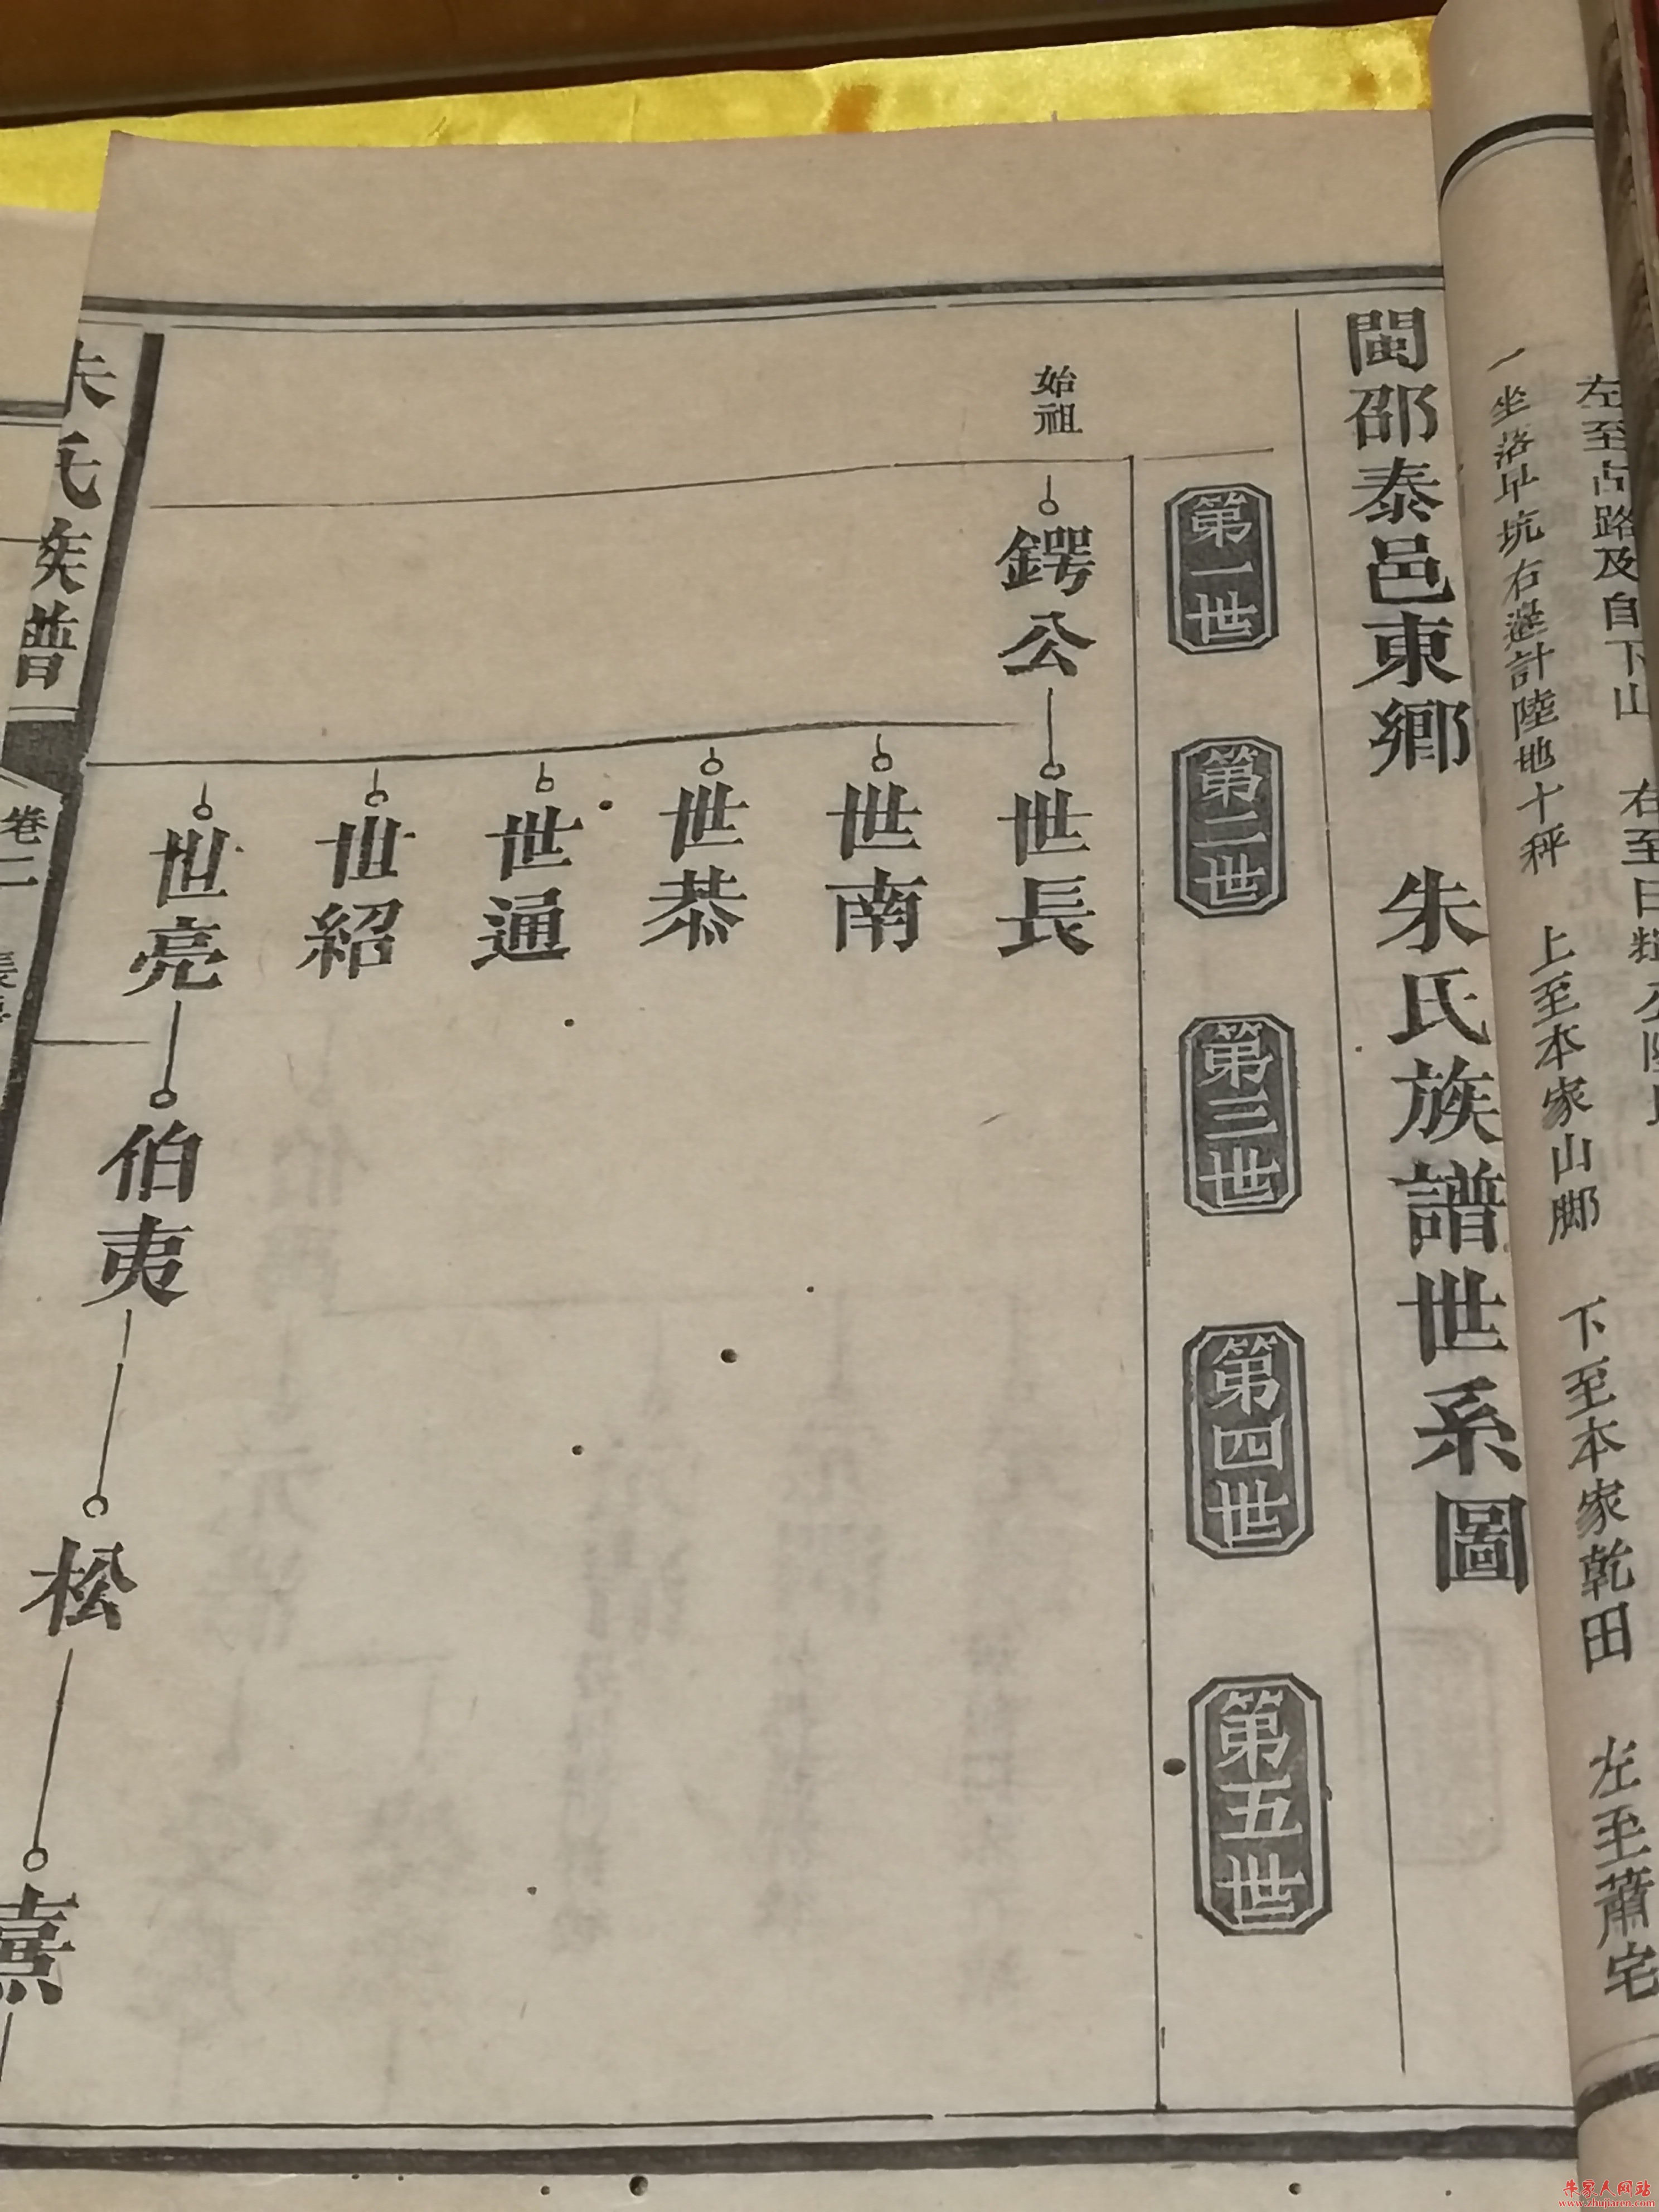 左至古路及自下山 右至田
一坐落早坑右邊計陸地十秤 上至本家山脚 下至本家乾田 左至蕭宅
閩邵泰邑東鄉 朱氏族譜世系圖
第一世
第二世
第三世
第四世
第五世
始祖
鍔公
世長
世南
世恭
世通
世紹
世亮
伯夷
松
熹
朱氏族譜
卷二
朱家人网站
www.zhujiaren.com